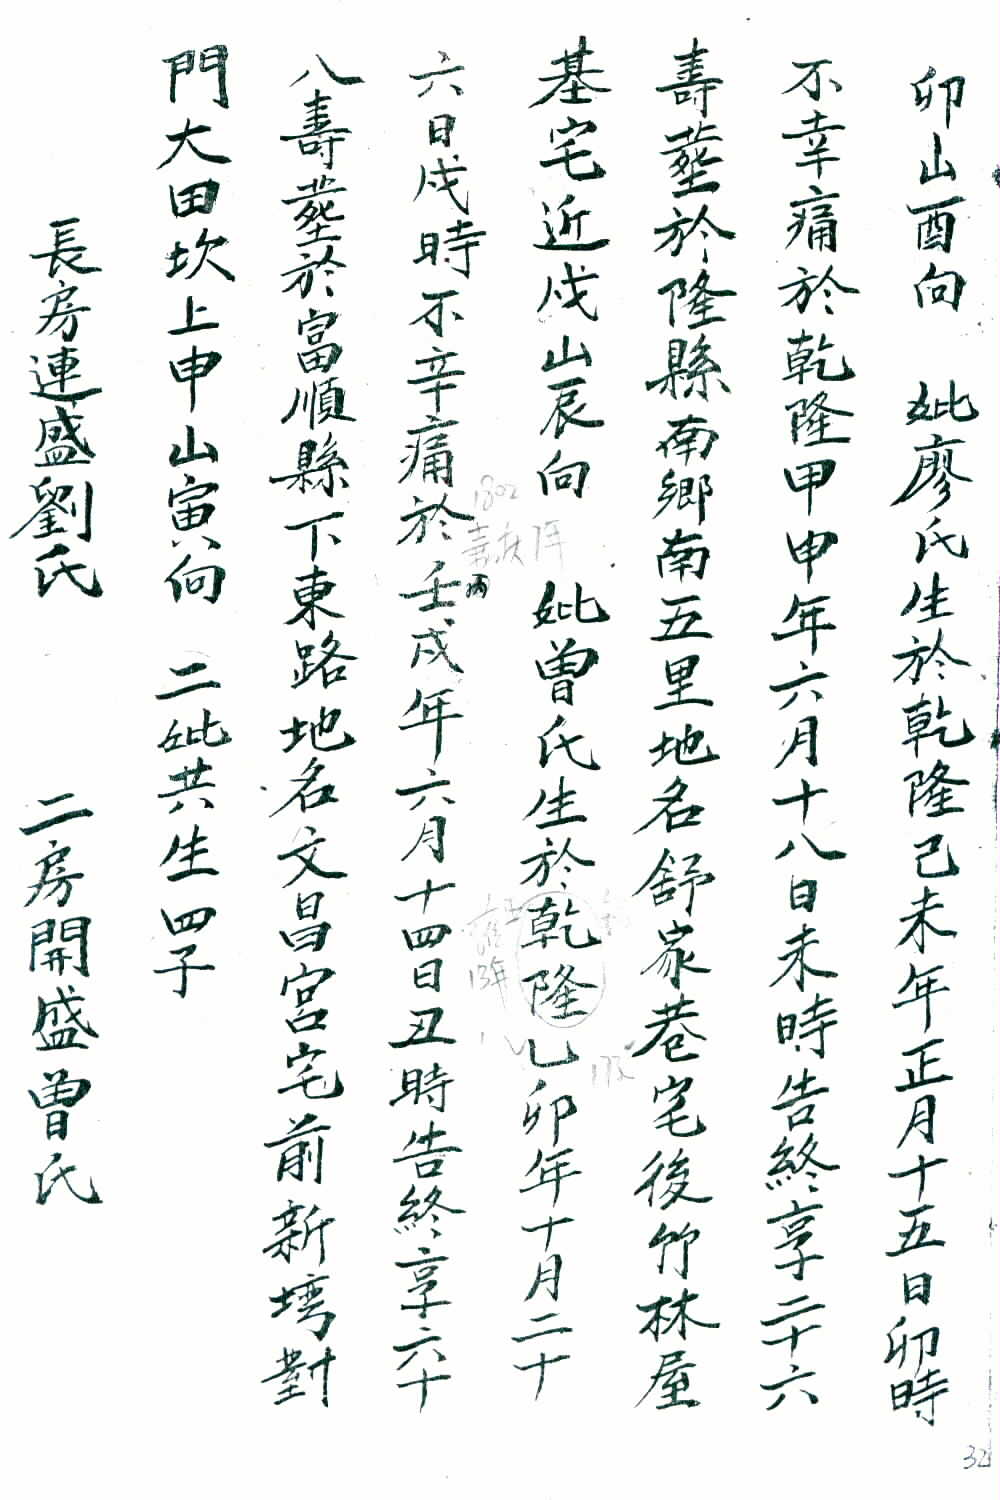 卯山酉向　妣廖氏生於乾隆己未年正月十五日卯時
不幸痛於乾隆甲申年六月十八日未時告終享二十六
壽塟於隆縣南鄉南五里地名舒家巷宅後竹林屋
基宅近戌山辰向　妣曾氏生於乾隆乙卯年十月二十
六日戌時不辛痛於壬戌年六月十四日丑時告終享六十
八壽塟於富順縣下東路地名文昌宮宅前新塆對
門大田坎上申山寅向　二妣共生四子
長房連盛劉氏　二房開盛曾氏
1802
嘉慶7年
13年
32